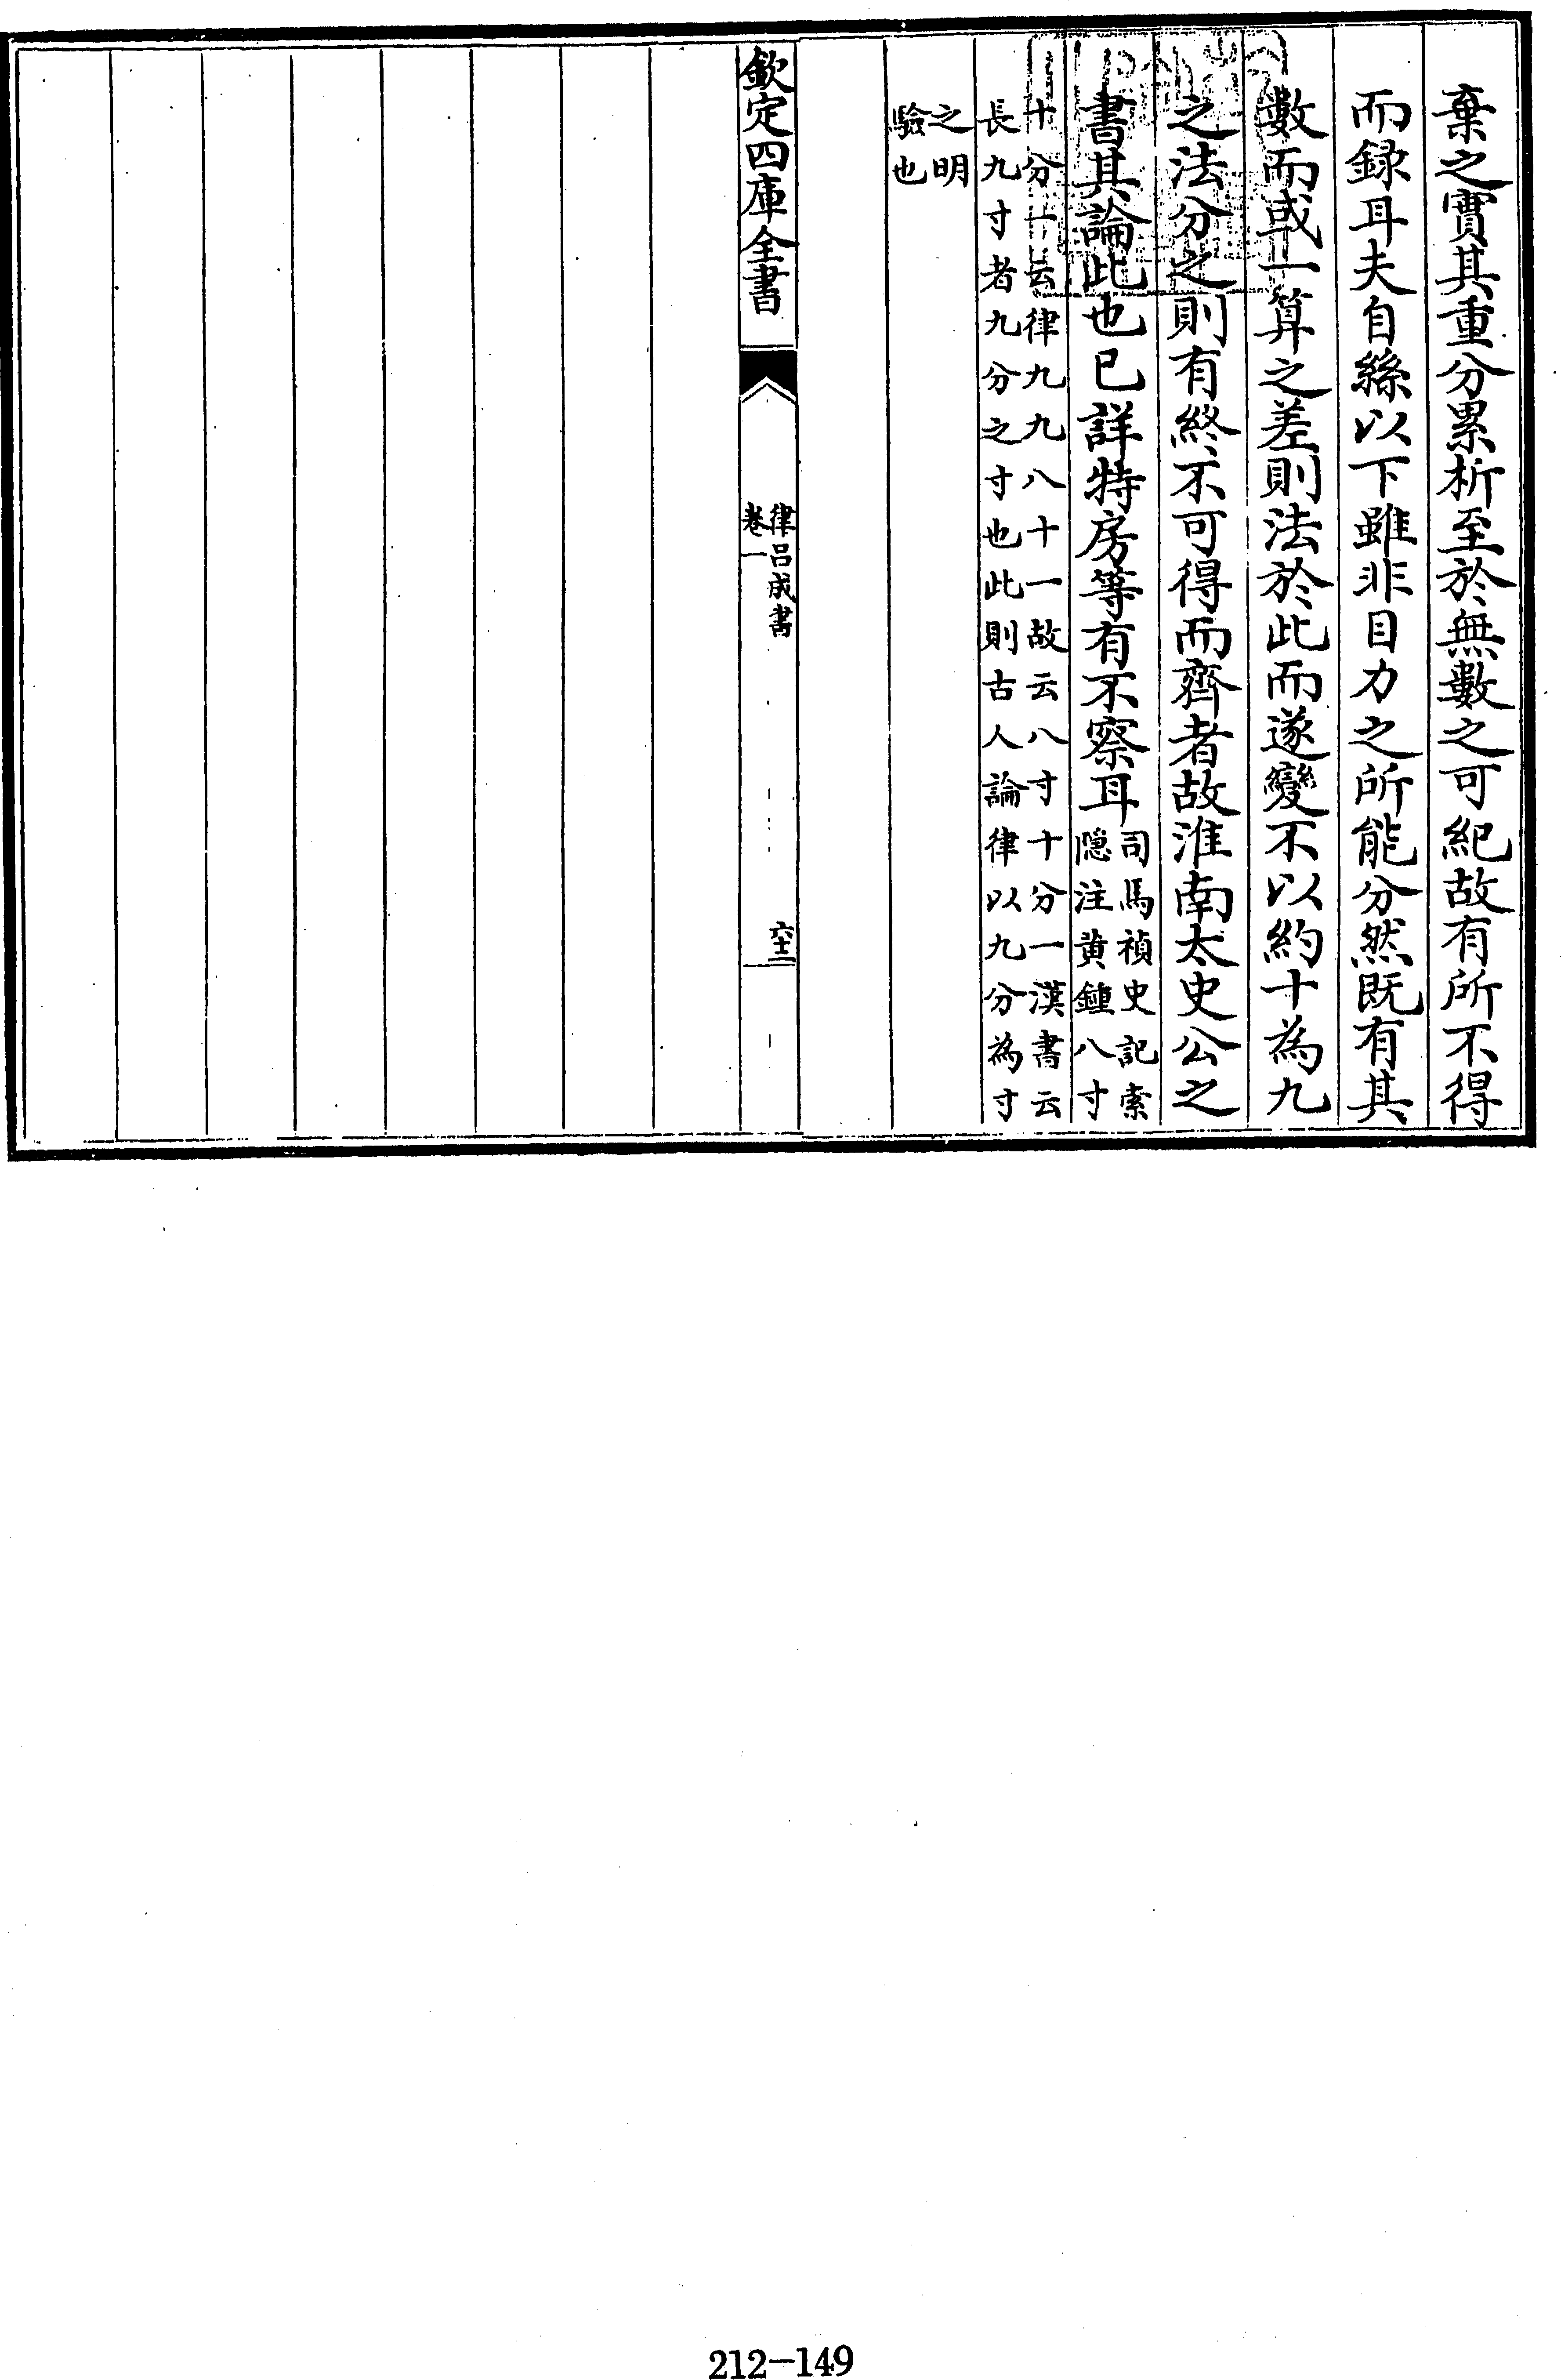 棄之實其重分累析至於無數之可紀故有所不得
而録耳夫自絲以下雖非目力之所能分然既有其
數而或一算之差則法於此而遂變不以約十為九
之法分之則有終不可得而齊者故淮南太史公之
書其論此也已詳特房等有不察耳司馬禎史記索
隠注黄鍾八寸
十分一云律九九八十一故云八寸十分一漢書云
長九寸者九分之寸也此則古人論律以九分為寸
之明
驗也
欽定四庫全書
律吕成書
卷一
六十二
212-149